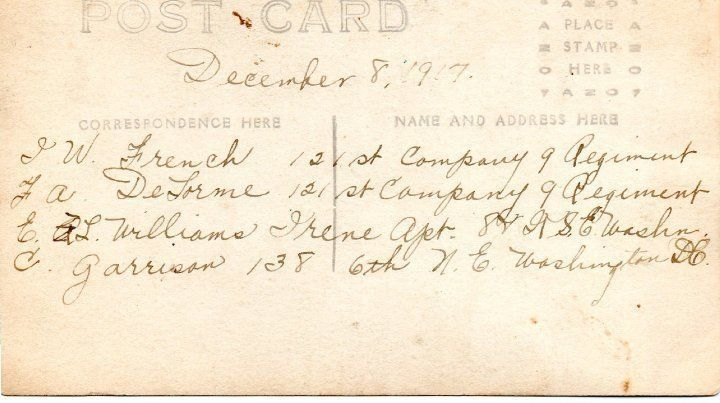 POST CARD
AZO
A PLACE A
Z STAMP Z
O HERE O
AZO
December 8, 1917.
CORRESPONDENCE HERE
NAME AND ADDRESS HERE
I W. French 121st Company 9 Regiment
F a DeLorme 121st Company 9 Regiment
E. L. Williams Irene Apt. S.E Washn.
C. Garrison 138 6th N. E. Washington DC.